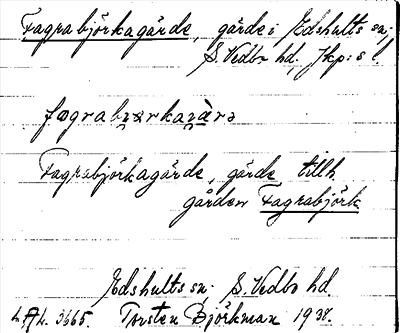 Fagrabjörkagärde, gärde i Edshults sn;
S. Vedbo hd, Jkp:s l.
Fagrabjörkagärde, gärde tillh.
gården Fagrabjörk
Edshults sn; S. Vedbo hd.
LAL. 3665. Torsten Björkman 1938.